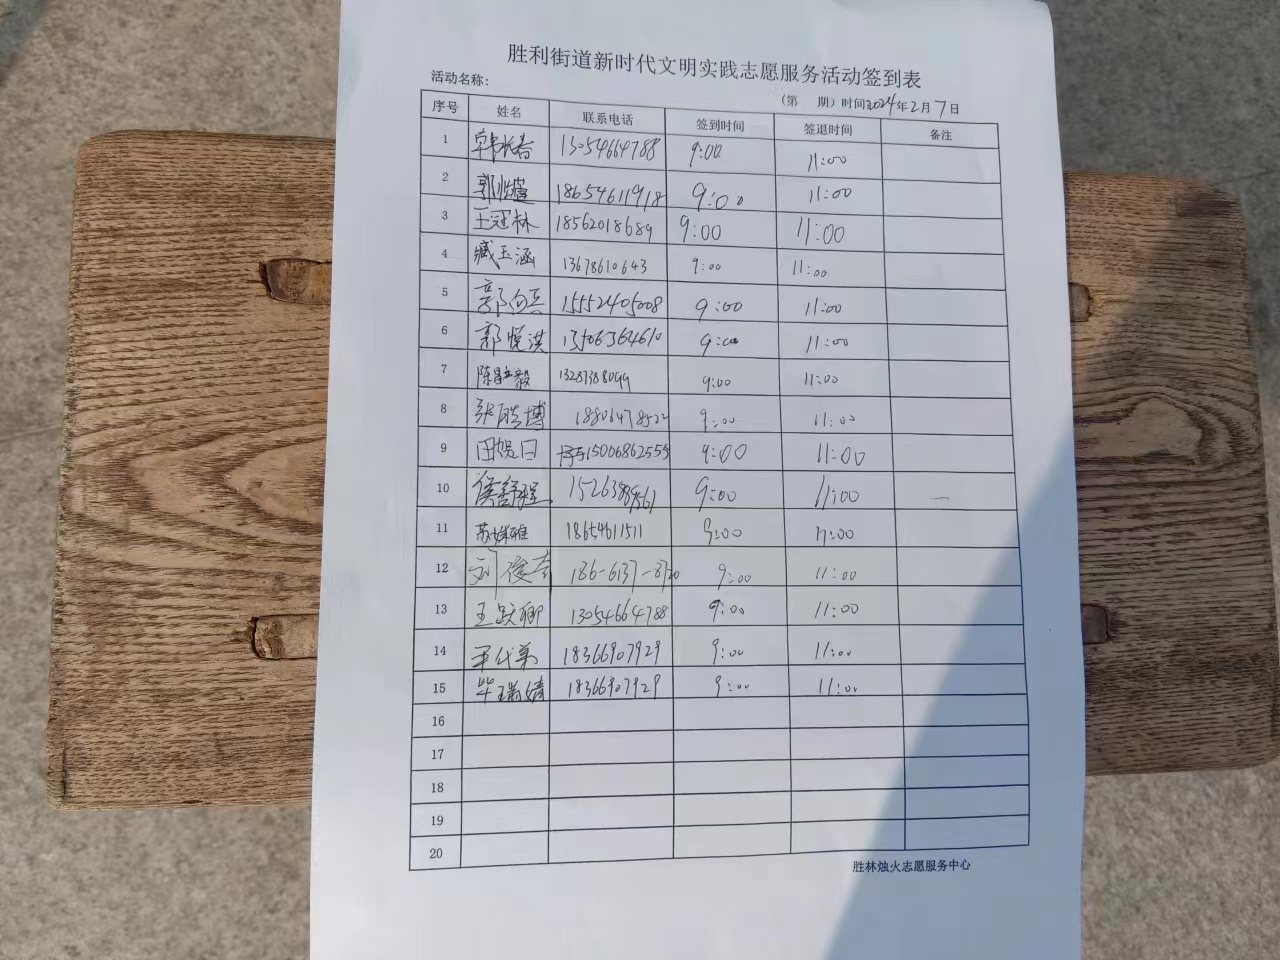 胜利街道新时代文明实践志愿服务活动签到表
活动名称：
（第 期）时间2024年2月7日
序号 姓名 联系电话 签到时间 签退时间 备注
1 韩长春 13054664788 9:00 11:00
2 郭 18654611918 9:00 11:00
3 王冠林 18562018689 9:00 11:00
4 臧玉涵 13678610643 9:00 11:00
5 郭向兵 15552405008 9:00 11:00
6 郭悦淇 9:00 11:00
7 陈 毅 9:00 11:00
8 张 博 9:00 11:00
9 田贺日 15006862555 9:00 11:00
10 侯舒程 9:00 11:00
11 苏 雅 18654611511 9:00 11:00
12 刘俊 9:00 11:00
13 王跃卿 13054664788 9:00 11:00
14 18366907929 9:00 11:00
15 毕瑞婧 18366907929 9:00 11:00
16
17
18
19
20
胜林烛火志愿服务中心